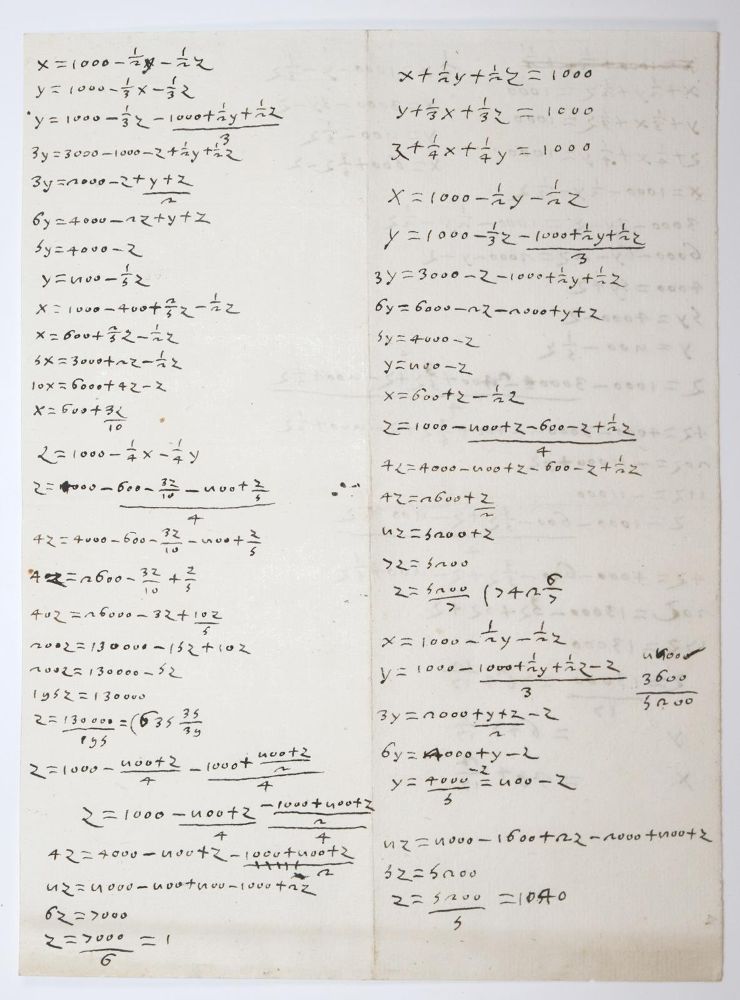 x=1000-½y-½z
y=1000-⅓x-⅓z
y=1000-⅓z-1000+½y+½z/3
3y=3000-1000-z+½y+½z
3y=2000-z+y+z/2
6y=4000-2z+y+z
5y=4000-z
y=800-⅕z
x=1000-400+⅖z-½z
x=600+⅖z-½z
5x=3000+2z-½z
10x=6000+4z-z
x=600+3z/10
z=1000-¼x-¼y
z=1000-600-3z/10-800+z/5/4
4z=4000-600-3z/10-800+z/5
4z=2600-3z/10+z/5
40z=26000-3z+10z/5
200z=130000-15z+10z
200z=130000-5z
195z=130000
z=130000/195=(635 35/39
z=1000-800+z/4-1000+800+z/2/4
z=1000-800+z/4-1000+800+z/2/4
4z=4000-800+z-1000+800+z/2
8z=8000-800+800-1000+2z
6z=7000
z=7000/6=1
x+½y+½z=1000
y+⅓x+⅓z=1000
z+¼x+¼y=1000
x=1000-½y-½z
y=1000-⅓z-1000+½y+½z/3
3y=3000-z-1000+½y+½z
6y=6000-2z-2000+y+z
5y=4000-z
y=800-z
x=600+z-½z
z=1000-800+z-600-z+½z/4
4z=4000-800+z-600-z+½z
4z=2600+z/2
8z=5200+z
7z=5200
z=5200/7 (742 6/7
x=1000-½y-½z
y=1000-1000+½y+½z-z/3
3600
5200
3y=2000+y+z/2-z
6y=4000+y-z
y=4000-z/5=800-z
8z=8000-1600+2z-2000+800+z
5z=5200
z=5200/5=1040